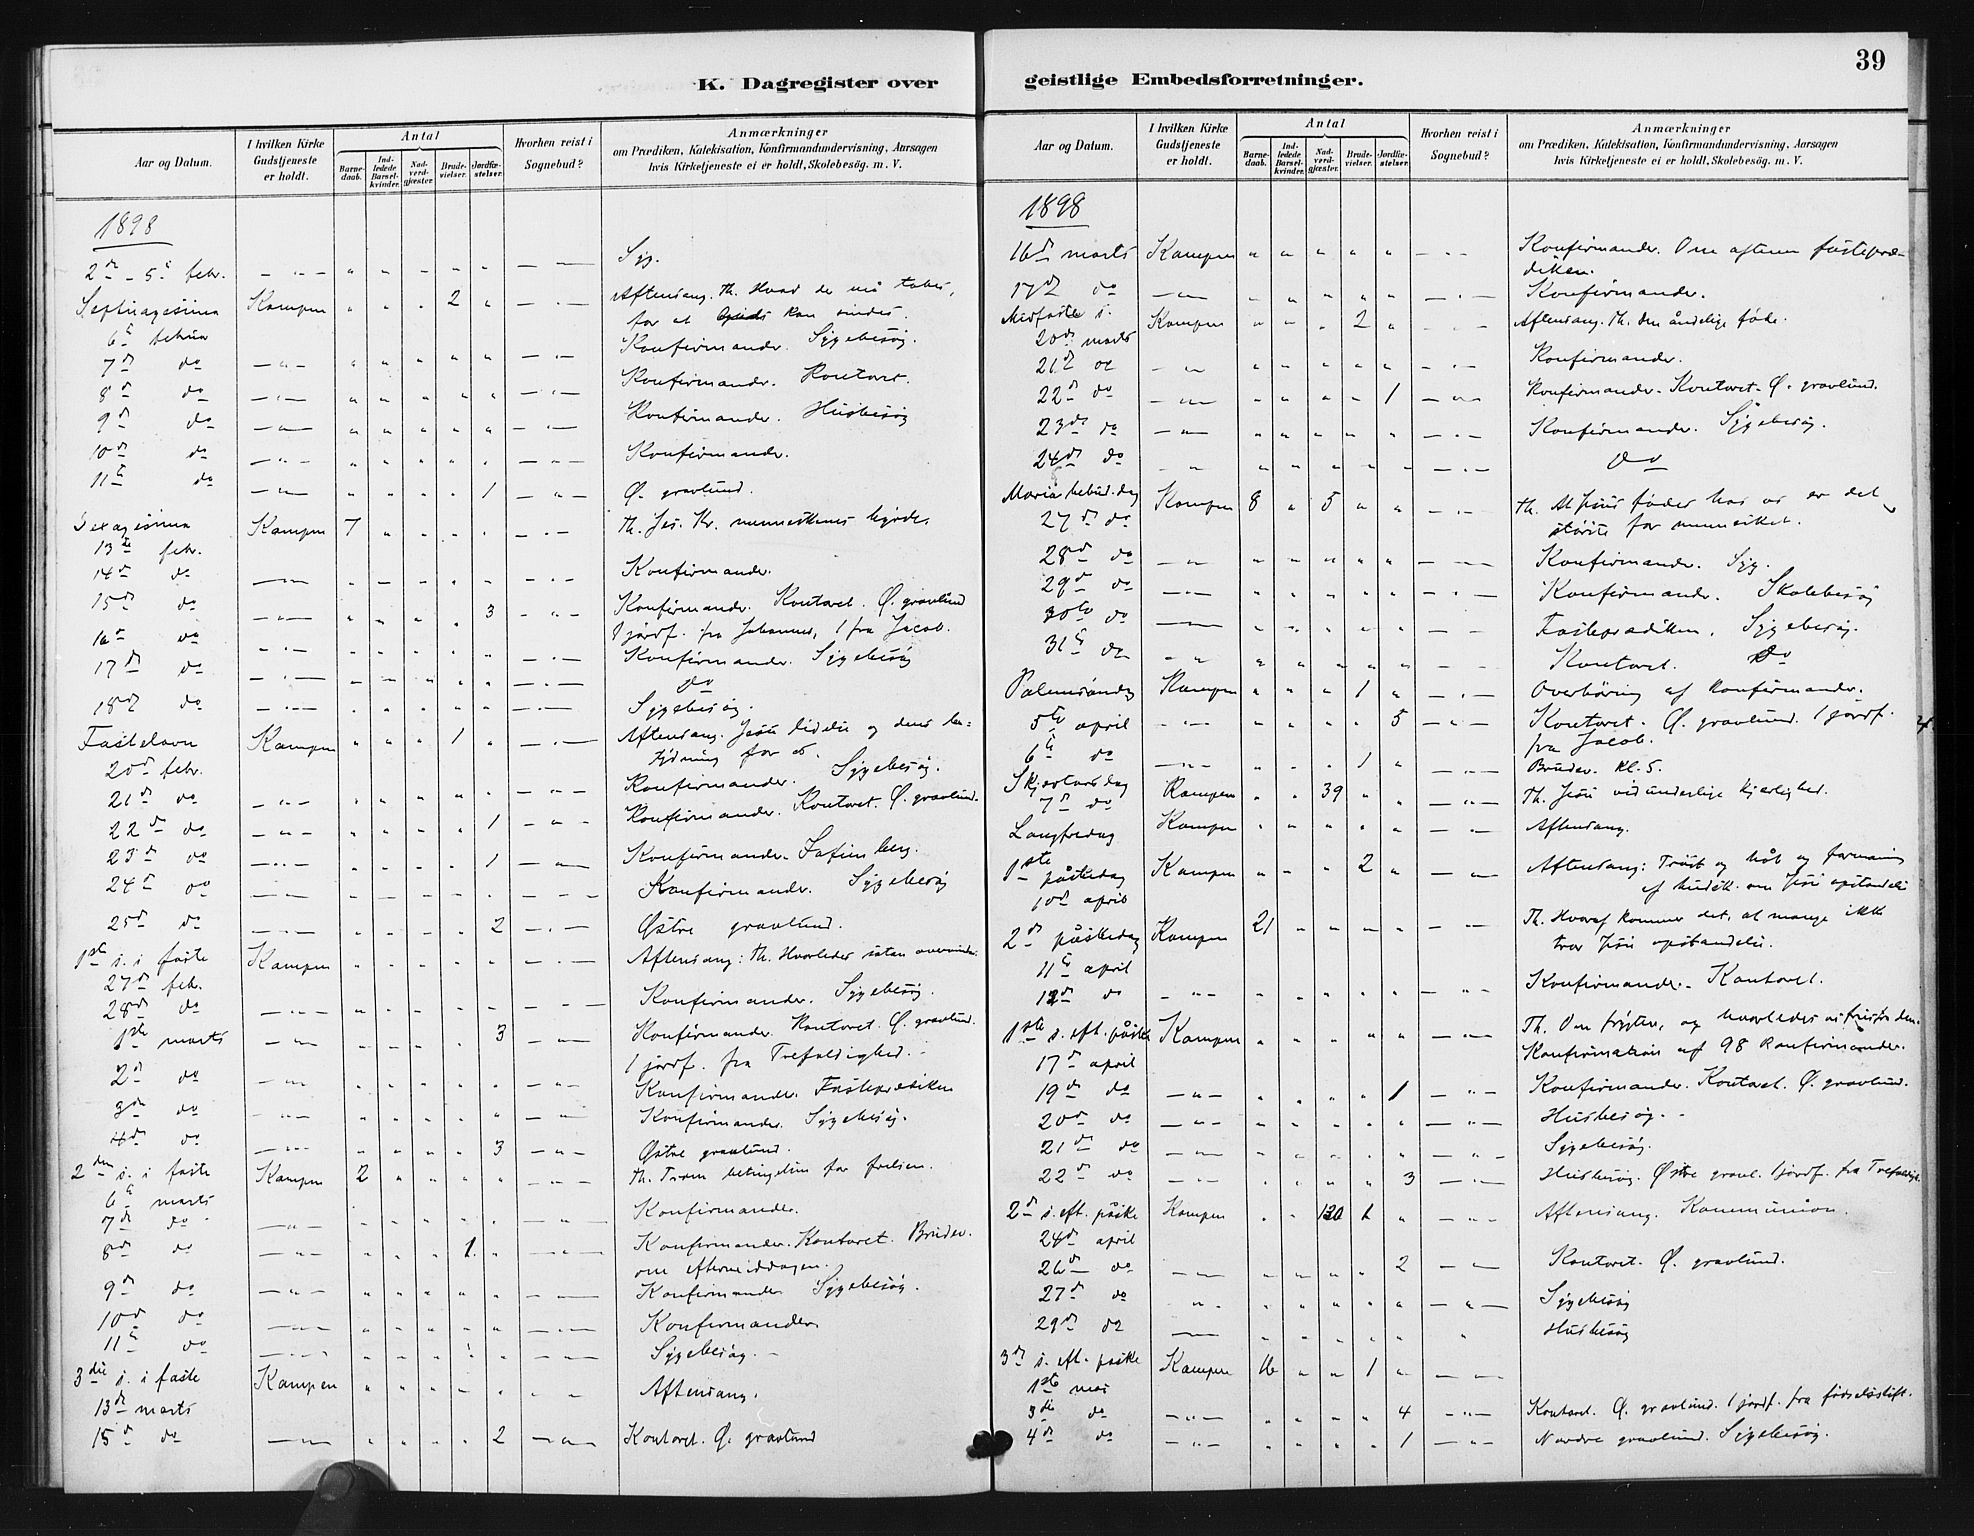 K. Dagregister over
Aar og Datum.
I hvilken Kirke Gudstjeneste er holdt.
Antal
Barne-daab.
Ind-ledede Barsel-kvinder.
Nad-verd-gjæster.
Brude-vielser.
Jordfæ-stelser.
Hvorhen reist i Sognebud?
Anmærkninger
om Prædiken, Katekisation, Konfirmandundervisning, Aarsagen
hvis Kirketjeneste ei er holdt, Skolebesög. m. V.
1898
2den - 5te febr. Syg.
Septuagesima Kampen 2 Aftensang. Th. Hvad der må tabes,
6te februar for at kan vindes.
7de do Konfirmander. Sygebesøg.
8de do Konfirmander. Kontoret.
9de do Konfirmander. Husbesøg
10de do Konfirmander.
11te do 1 Ø. gravlund.
Sexagesima Kampen 7 Th. Jes. Kr. menneskenes hyrde.
13de febr.
14de do Konfirmander.
15de do 3 Konfirmander. Kontoret. Ø. gravlund
1 jordf. fra Johannes, 1 fra Jacob.
16de do Konfirmander. Sygebesøg
17de do do
18de do Sygebesøg.
Fastelavn Kampen 1 Aftensang. Jesu lidelse og dens be-
20de febr. tydning for os.
21de do Konfirmander. Sygebesøg.
22de do 1 Konfirmander. Kontoret. Ø. gravlund.
23de do 1 Konfirmander.
24de do Konfirmander. Sygebesøg
25de do 2 Østre gravlund.
1ste s. i faste Kampen Aftensang: Th. Hvorledes satan overvindes.
27de feb.
28de do Konfirmander. Sygebesøg.
1ste marts 3 Konfirmander. Kontoret. Ø. gravlund.
1 jordf. fra Trefoldighed.
2den do Konfirmander. Fasteprædiken
3die do Konfirmander. Sygebesøg.
4de do 3 Østre gravlund.
2den s. i faste Kampen 2 Th. Troen betingelsen for frelsen.
6te marts
7de do Konfirmander.
8de do 1 Konfirmander. Kontoret. Brudev.
om eftermiddagen.
9de do Konfirmander Sygebesøg.
10de do Konfirmander
11te do Sygebesøg.
3die s. i faste Kampen Aftensang.
13de marts
15de do 2 Kontoret. Ø. gravlund
geistlige Embedsforretninger.
39
Aar og Datum.
I hvilken Kirke Gudstjeneste er holdt.
Antal
Barne-daab.
Ind-ledede Barsel-kvinder.
Nad-verd-gjæster.
Brude-vielser.
Jordfæ-stelser.
Hvorhen reist i Sognebud?
Anmærkninger
om Prædiken, Katekisation, Konfirmandundervisning, Aarsagen
hvis Kirketjeneste ei er holdt, Skolebesög. m. V.
1898
16de marts Kampen Konfirmander. Om aftenen fastepræ-
diken.
17de do Konfirmander.
Midfaste s. Kampen 2 Aftensang. Th. den åndelige føde.
20de marts
21de do Konfirmander.
22de do 1 Konfirmander. Kontoret. Ø. gravlund.
23de do Konfirmander. Sygebesøg.
24de do do
Mariæ bebud. dag Kampen 8 5 Th. At Jesus føder hos os er det
27de do største for mennesket.
28de do Konfirmander. Syg.
29de do Konfirmander. Skolebesøg
30te do Fasteprædiken. Sygebesøg.
31te do Kontoret. do
Palmesøndag Kampen 1 Overhøring af konfirmander.
5te april 5 Kontoret. Ø. gravlund. 1 jordf.
fra Jacob.
6te do 1 Brudev. kl. 5.
Skjærtorsdag Kampen 39 Th. Jesu vidunderlige kjærlighed.
7de do
Langfredag Kampen Aftensang.
1ste påskedag Kampen 2 Aftensang: Trøst og håb og formaning
10de april om Jesu opstandelse
2den påskedag Kampen 21 Th. Hvoraf kommer det, at mange ikke
11te april tror Jesu opstandelse.
12de do Konfirmander. Kontoret.
1ste s. eft. påske Kampen Th. Om frygten, og hvorledes vi fries fra den.
17de april Konfirmation af 98 konfirmander.
19de do 1 Konfirmander. Kontoret. Ø. gravlund.
20de do Husbesøg.
21de do Sygebesøg.
22de do 3 Husbesøg. Østre gravl. 1 jordf. fra Trefoldigh.
2den s. eft. påske Kampen 120 1 Aftensang. Kommunion.
24de april
26de do 2 Kontoret. Ø. gravlund.
27de do Sygebesøg
29de do Husbesøg
3die s. eft. påske Kampen 16 1
1ste mai
3die do 4 Kontoret. Ø. gravlund. 1 jordf. fra fødselsstift.
4de do 1 Nordre gravlund. Sygebesøg.